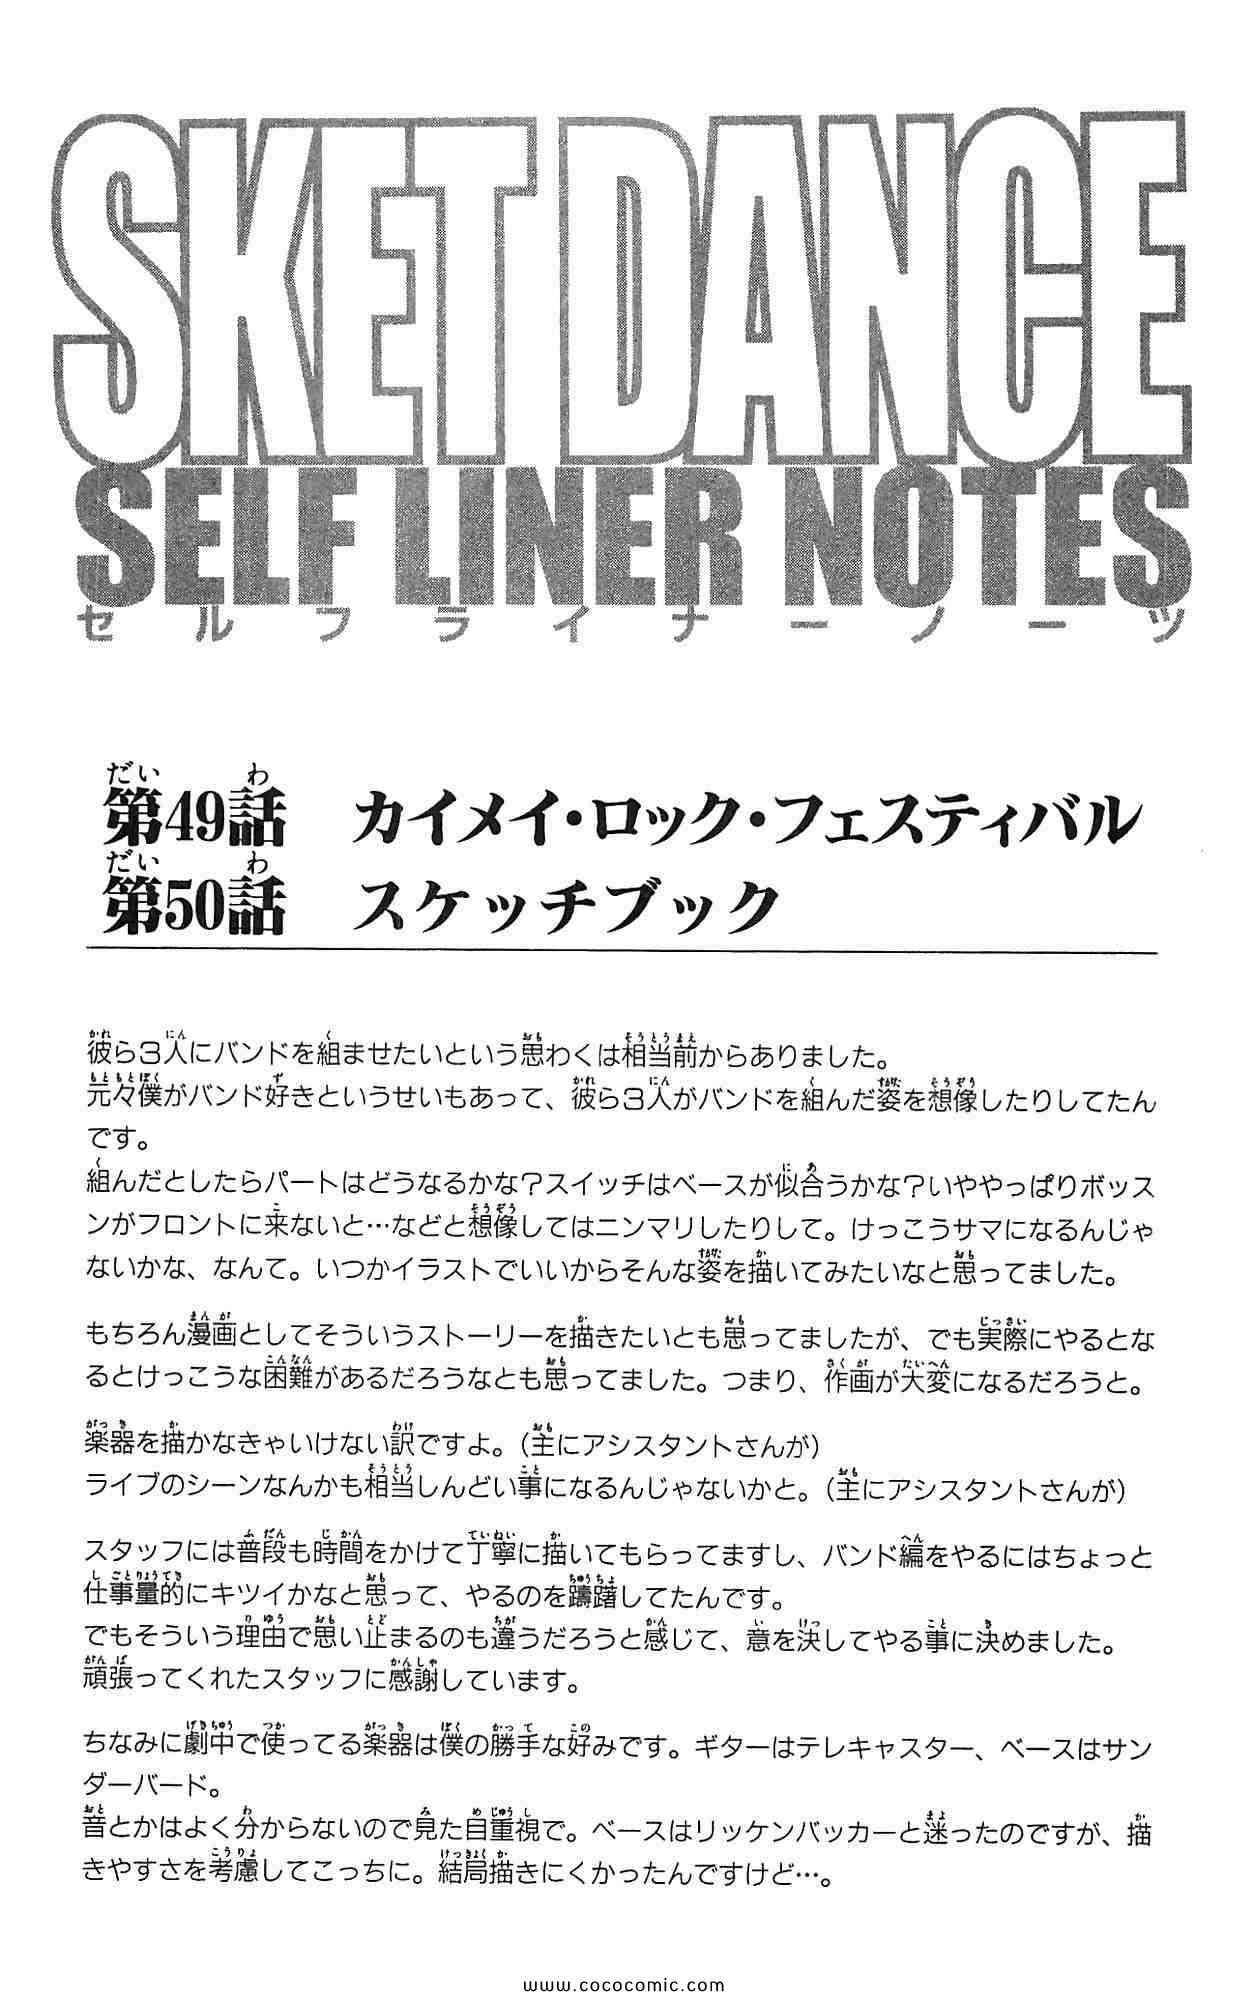 SKET DANCE
SELF LINER NOTES
セルフライナーノーツ
第49話 カイメイ・ロック・フェスティバル
第50話 スケッチブック
彼ら3人にバンドを組ませたいという思わくは相当前からありました。
元々僕がバンド好きというせいもあって、彼ら3人がバンドを組んだ姿を想像したりしてたん
です。
組んだとしたらパートはどうなるかな?スイッチはベースが似合うかな?いややっぱりボッス
ンがフロントに来ないと…などと想像してはニンマリしたりして。けっこうサマになるんじゃ
ないかな、なんて。いつかイラストでいいからそんな姿を描いてみたいなと思ってました。
もちろん漫画としてそういうストーリーを描きたいとも思ってましたが、でも実際にやるとな
るとけっこうな困難があるだろうなとも思ってました。つまり、作画が大変になるだろうと。
楽器を描かなきゃいけない訳ですよ。(主にアシスタントさんが)
ライブのシーンなんかも相当しんどい事になるんじゃないかと。(主にアシスタントさんが)
スタッフには普段も時間をかけて丁寧に描いてもらってますし、バンド編をやるにはちょっと
仕事量的にキツイかなと思って、やるのを躊躇してたんです。
でもそういう理由で思い止まるのも違うだろうと感じて、意を決してやる事に決めました。
頑張ってくれたスタッフに感謝しています。
ちなみに劇中で使ってる楽器は僕の勝手な好みです。ギターはテレキャスター、ベースはサン
ダーバード。
音とかはよく分からないので見た目重視で。ベースはリッケンバッカーと迷ったのですが、描
きやすさを考慮してこっちに。結局描きにくかったんですけど…。
www.cococomic.com